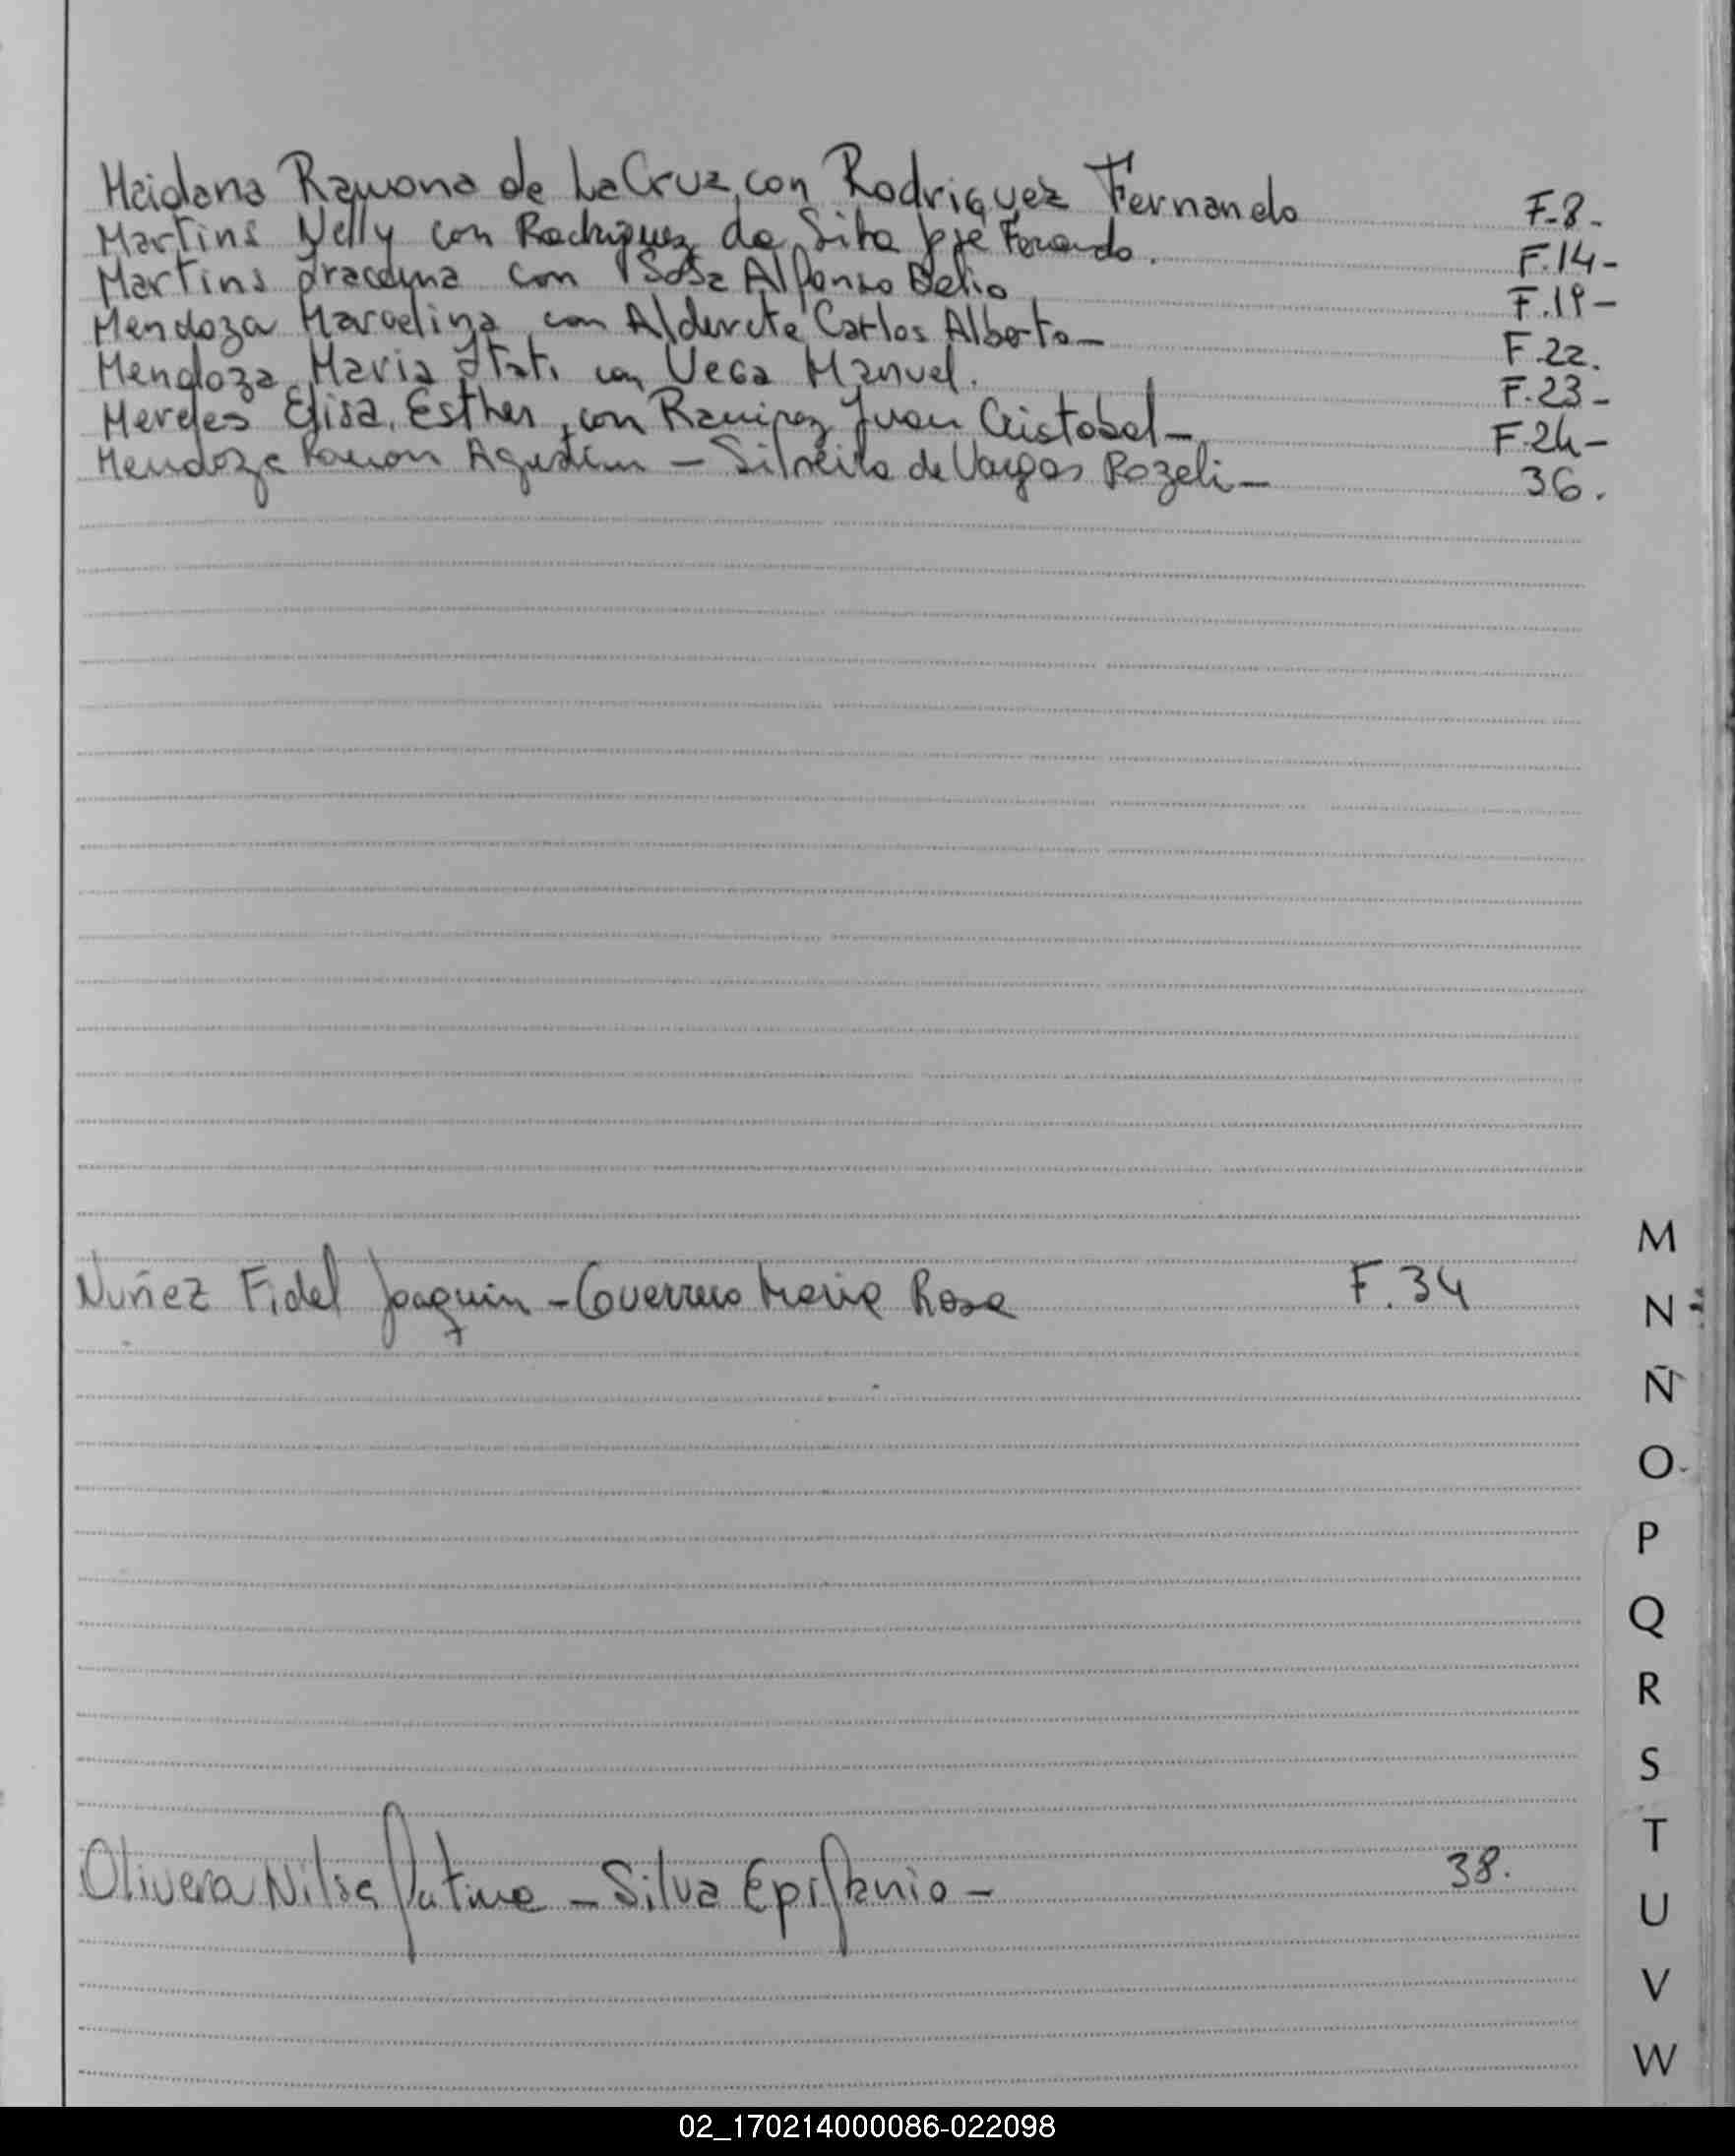 Maidana Ramona de La Cruz, con Rodriguez Fernando F.8.
Martins Nelly con Rodriguez da Silva José Fernando. F.14-
Martins Iracema con Sosa Alfonso Delio F.19-
Mendoza Marcelina con Alderete Carlos Alberto- F.22.
Mendoza Maria Itati con Vega Manuel. F.23-
Mereles Elisa Esther, con Ramirez Juan Cristobal- F.24-
Mendoza Ramon Agustin - Silveira de Vargas Rozeli- 36.
Nuñez Fidel Joaquin - Guerrero Maria Rosa F.34
Olivera Nilsa - Silva Epifanio - 38.
M
N
Ñ
O
P
Q
R
S
T
U
V
W
02_170214000086-022098